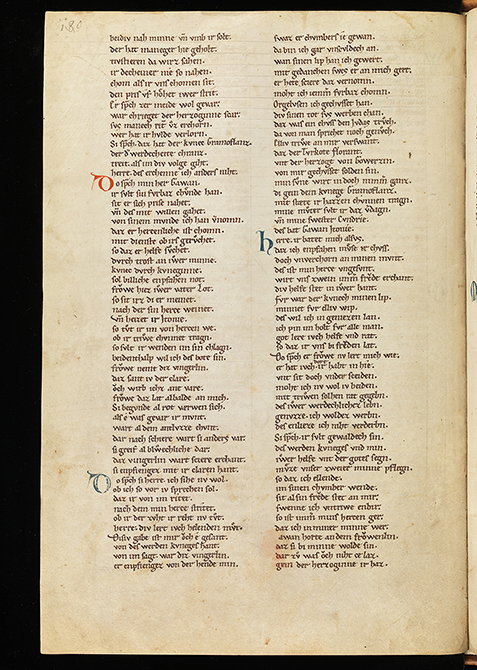 280
beidiv nah minne vn vmb ir solt.
der hat maneger hie geholt.
tivstieren da wirz sahen.
ir decheiner nie so nahen.
chom als ir vns chomen sit.
den pris vf hohet iwer strit.
Er sprach
war chrieger der herzoginne
wer hat ir hvlde verlorn.
Si sprach. daz hat der kunec Gramoflanz.
der
treit. als im div volge giht.
herre. des erchenne ich anders niht.
Do sprach min her Gawan.
ir svlt sin fvrbaz chvnde han.
sit er sich prise nahet.
vn des mit willen gahet.
von sinem mvnde ich han vnomn.
daz er herzenliche ist chomn.
mit dienste ob irs gerochet.
so daz er helfe svchet.
dvrch trost an iwer minne.
kunec dvrch kuneginne.
sol billiche enpfahen not.
frowe hiez iwer vater Lot.
so sit irz di er meinet.
nach der sin herze weinet.
vn heizet ir Itonie.
so tvt ir im von herzen we.
ob ir triwe chvnnet tragn.
so svlt ir wenden im sin chlagn.
beidenthalp wil ich des bote sin.
frowe nemt diz vingerlin.
daz sant iv der clare.
och wirb ichz ane vare.
frowe daz lat albalde an mich.
Si begvnde al rot verwen sich.
als e was gevar ir mvnt.
wart al dem antlvzze chvnt.
dar nach schiere wart si anders var.
si greif al blvechliche dar.
daz vingerlin wart schiere erchant.
si enpfiengez mit ir claren hant.
Do sprach si herre. ich sihe nv wol.
ob ich so vor iv sprechen sol.
daz ir von im ritet.
nach dem min herze stritet.
ob ir der zvht ir reht nv tvt.
herre. div lert ivch helenden mvt.
Disiv gabe ist mir och e gesant.
von des werden kuneges hant.
von im sagt war diz vingerlin.
er enpfiengez von der hende min.
swaz er chvmbers ie gewan.
da bin ich gar vnschvldech an.
wan sinen lip han ich gewert.
mit gedanchen swes er an mich gert.
er hete schiere daz vernomn.
moht ich iemmer fvrbaz chomn.
Orgelvsen ich gechvsset han.
div sinen tot svs werben chan.
daz was ein chvss den Jvdas trvch.
da von man sprichet noch genvch.
elliv triwe an mir verswant.
daz der tvrkote Florant.
vnt der herzoge von Gowerzin.
von mir gechvsset solden sin.
min svne wirt in doch nimmer ganz.
di gein dem kunege Gramoflanz.
mit stæte ir hazzen chvnnen tragn.
mine mvter svlt ir daz vdagn.
vn mine swester Cvndrie.
des bat Gawan Itonie.
Herre. ir batet mich alsvs.
daz ich enpfahen mvse ir chvss.
doch vnverchorn an minen mvnt.
des ist min herze vngesvnt.
wirt vns zwein immer frode erchant.
div helfe stet in iwer hant.
fvr war der kunech minen lip.
minnet fvr elliv wip.
des wil ich in geniezen lan.
ich pin im holt fvr alle man.
got lere ivch helfe vnd rat.
so daz ir vns bi froden lat.
Do sprach er frowe nv lert mich wie.
er hat ivch. ir habt in hie.
vnt sit doch vnder scheiden.
moht ich nv wol iv beiden.
mit triwen solhen rat gegebn.
des iwer werdechlichez lebn.
genvzze. ich woldez werbn.
des enlieze ich niht verderbn.
Si sprach. ir svlt gewaldech sin.
des werden kuneges vnd min.
iwer helfe vnt der gotes segn.
mvze vnser zweier minne pflegn.
so daz ich ellende.
im sinen chvmber wende.
sit al sin frode stet an mir.
swenne ich vntriwe enbir.
so ist immer mins herzen ger.
daz ich in miner minne wer.
Gawan horte an dem frowenlin.
daz si bi minne wolde sin.
dar zv was och niht ce laz.
gein der herzoginne ir haz.